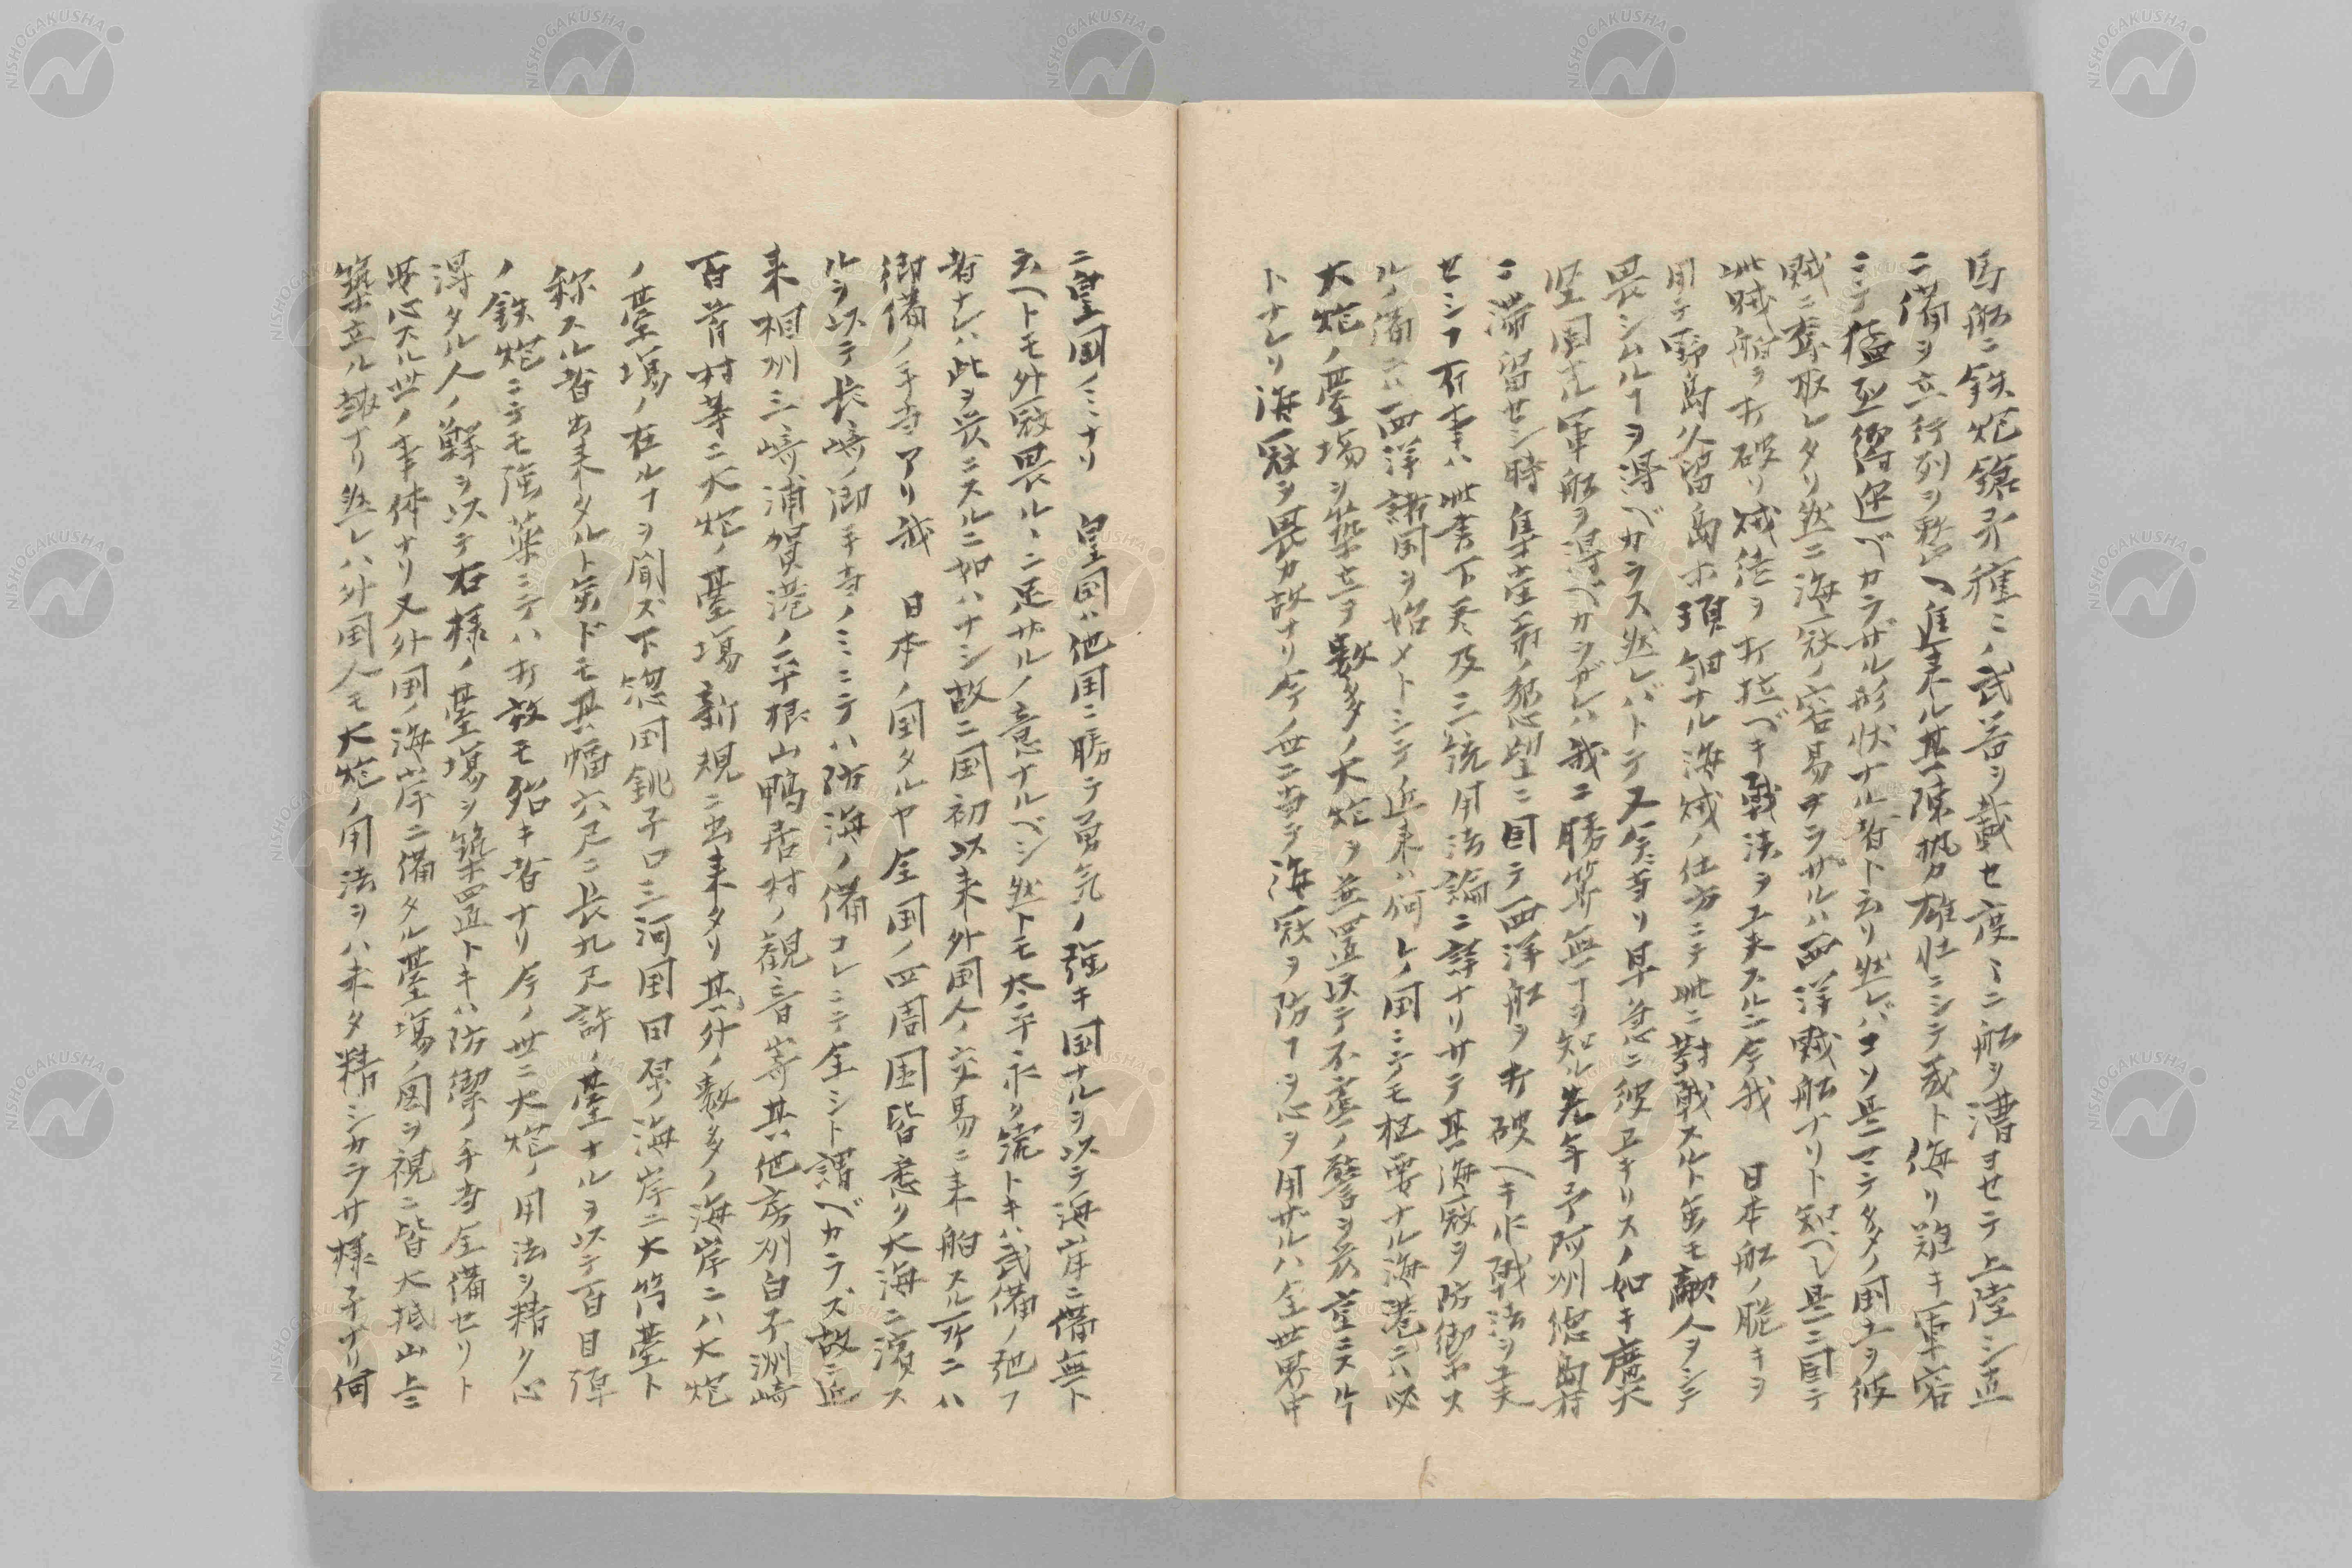 馬船ニ鉄炮鎗永種々ノ武器ヲ載セ度々ニ船ヲ漕ヨセテ上陸シ直
ニ備ヲ立行列ヲ整ヘ進来ル其陳勢カ雄壮ニシテ或ト侮リ難キ軍容
ニテ猛烈ベカラザル形状ナル者ト云リ然レバコソ是マテ多クノ国土ヲ彼
賊ニ奪取レタリ然ニ海寇ノ容易ナラザルハ西洋賊船ナリト知ベシ是ニ因テ
此賊船ヲ打破リ賊徒ヲ打拉ベキ戦法ヲ工夫スルニ今我 日本船ノ脆キヲ
用テ野島久留島ホ瑣細ナル海賊ノ仕方ニテ此ニ對戦スルト雖モ敵人ヲシテ
畏シムルヿヲ得ベカラス然レバトテ又今寺リ早急ニ彼ヱキリスノ如キ廣大
堅固ナル軍船ヲ得ベカラザレハ我ニ勝筭無ヿヲ知ル先年予阿州徳島村
ニ滞留セシ時集堂君ノ懇望ニ因テ西洋船ヲ打破ヘキ水戦法ヲ工夫
セシヿ有事ハ此書下巻及三銃用法論ニ詳ナリサテ其海寇ヲ防禦ス
ルノ備ニハ西洋諸国ヲ始メトシテ近来ハ何レノ国ニテモ枢要ナル海港ニハ必
大炮ノ臺場ヲ築立テ數多ノ大炮ヲ並置以テ不虞ノ警ヲ嚴重ニスルヿ
トナレリ海寇ヲ畏カ故ナリ今ノ世ニ當テ海寇ヲ防ヿヲ心ヲ用ザルハ全世界中
ニ皇国ノミナリ 皇国ハ他国ニ勝テ勇気ノ強キ国ナルヲ以テ海岸ニ備無ト
云ヘトモ外寇畏ルヽニ足ザルノ意ナルベシ然トモ太平永ク流トキハ武備ノ弛ヿ
者ナレハ此ヲ嚴ニスルニ如ハナシ故ニ国初以来外国人ノ交易ニ来舶スル所ニハ
御備ノ手當アリ我 日本ノ国タルヤ全国ノ四周囲皆悉ク大海ニ濱ス
ルヲ以テ長崎ノ御手當ノミニテハ防海ノ備コレニテ全シト謂ベカラズ故ニ近
来相州三崎浦賀港ノ平根山鴨居村ノ観音嵜其他房州白子洲崎
百首村等ニ大炮ノ臺場新規ニ出来タリ其外ノ數多ノ海岸ニハ大炮
ノ臺場ノ在ルヿヲ聞ズ下総国銚子口三河国田原ノ海岸ニ大筒臺ト
称スル者出来タルト雖ドモ其幅六尺ニ長九尺許ノ臺ナルヲ以テ百目弾
ノ鉄炮ニテモ強薬ニテハ打放モ殆キ者ナリ今ノ世ニ大炮ノ用法ヲ精ク心
得タル人ノ鮮ヲ以テ右様ノ臺場ヲ築置トキハ防禦ノ手當全備セリト
安心スル世ノ事体ナリ又外国ノ海岸ニ備タル臺場ノ図ヲ視ニ皆大抵山上ニ
築立ル趣ナリ然レハ外国人モ大炮ノ用法ヲハ未タ精シカラサ様子ナリ何